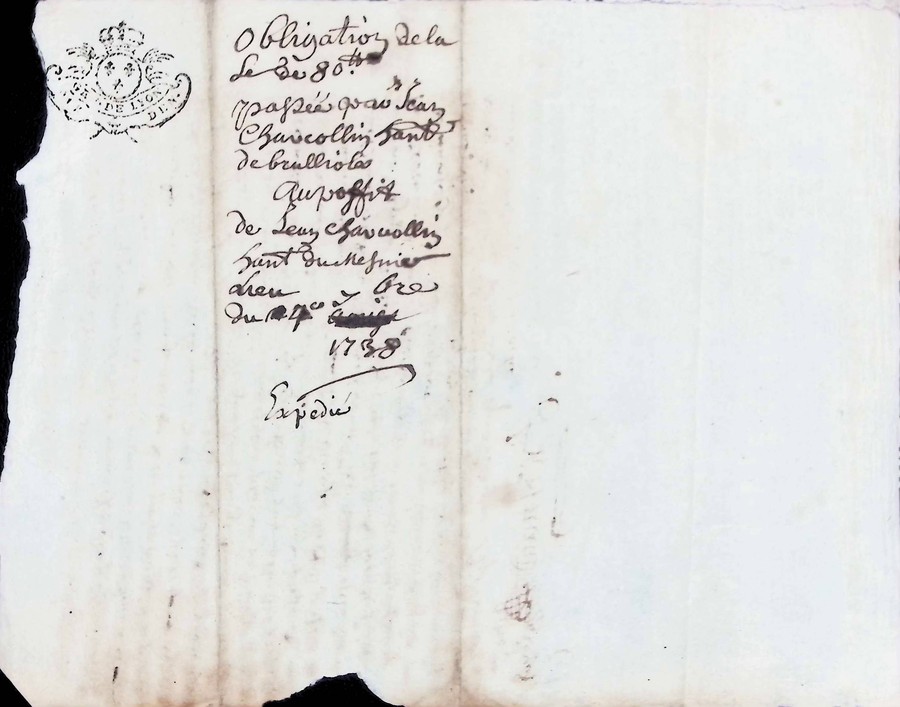 DE LYON
Obligation de la
Se de 80ᵗᵗ
passée par Jean
Charcollin hant
de brullioles
Au proffit
de Jean charcollin
hant du
Lieu
du 4ᵉ bre
1738
Expedié